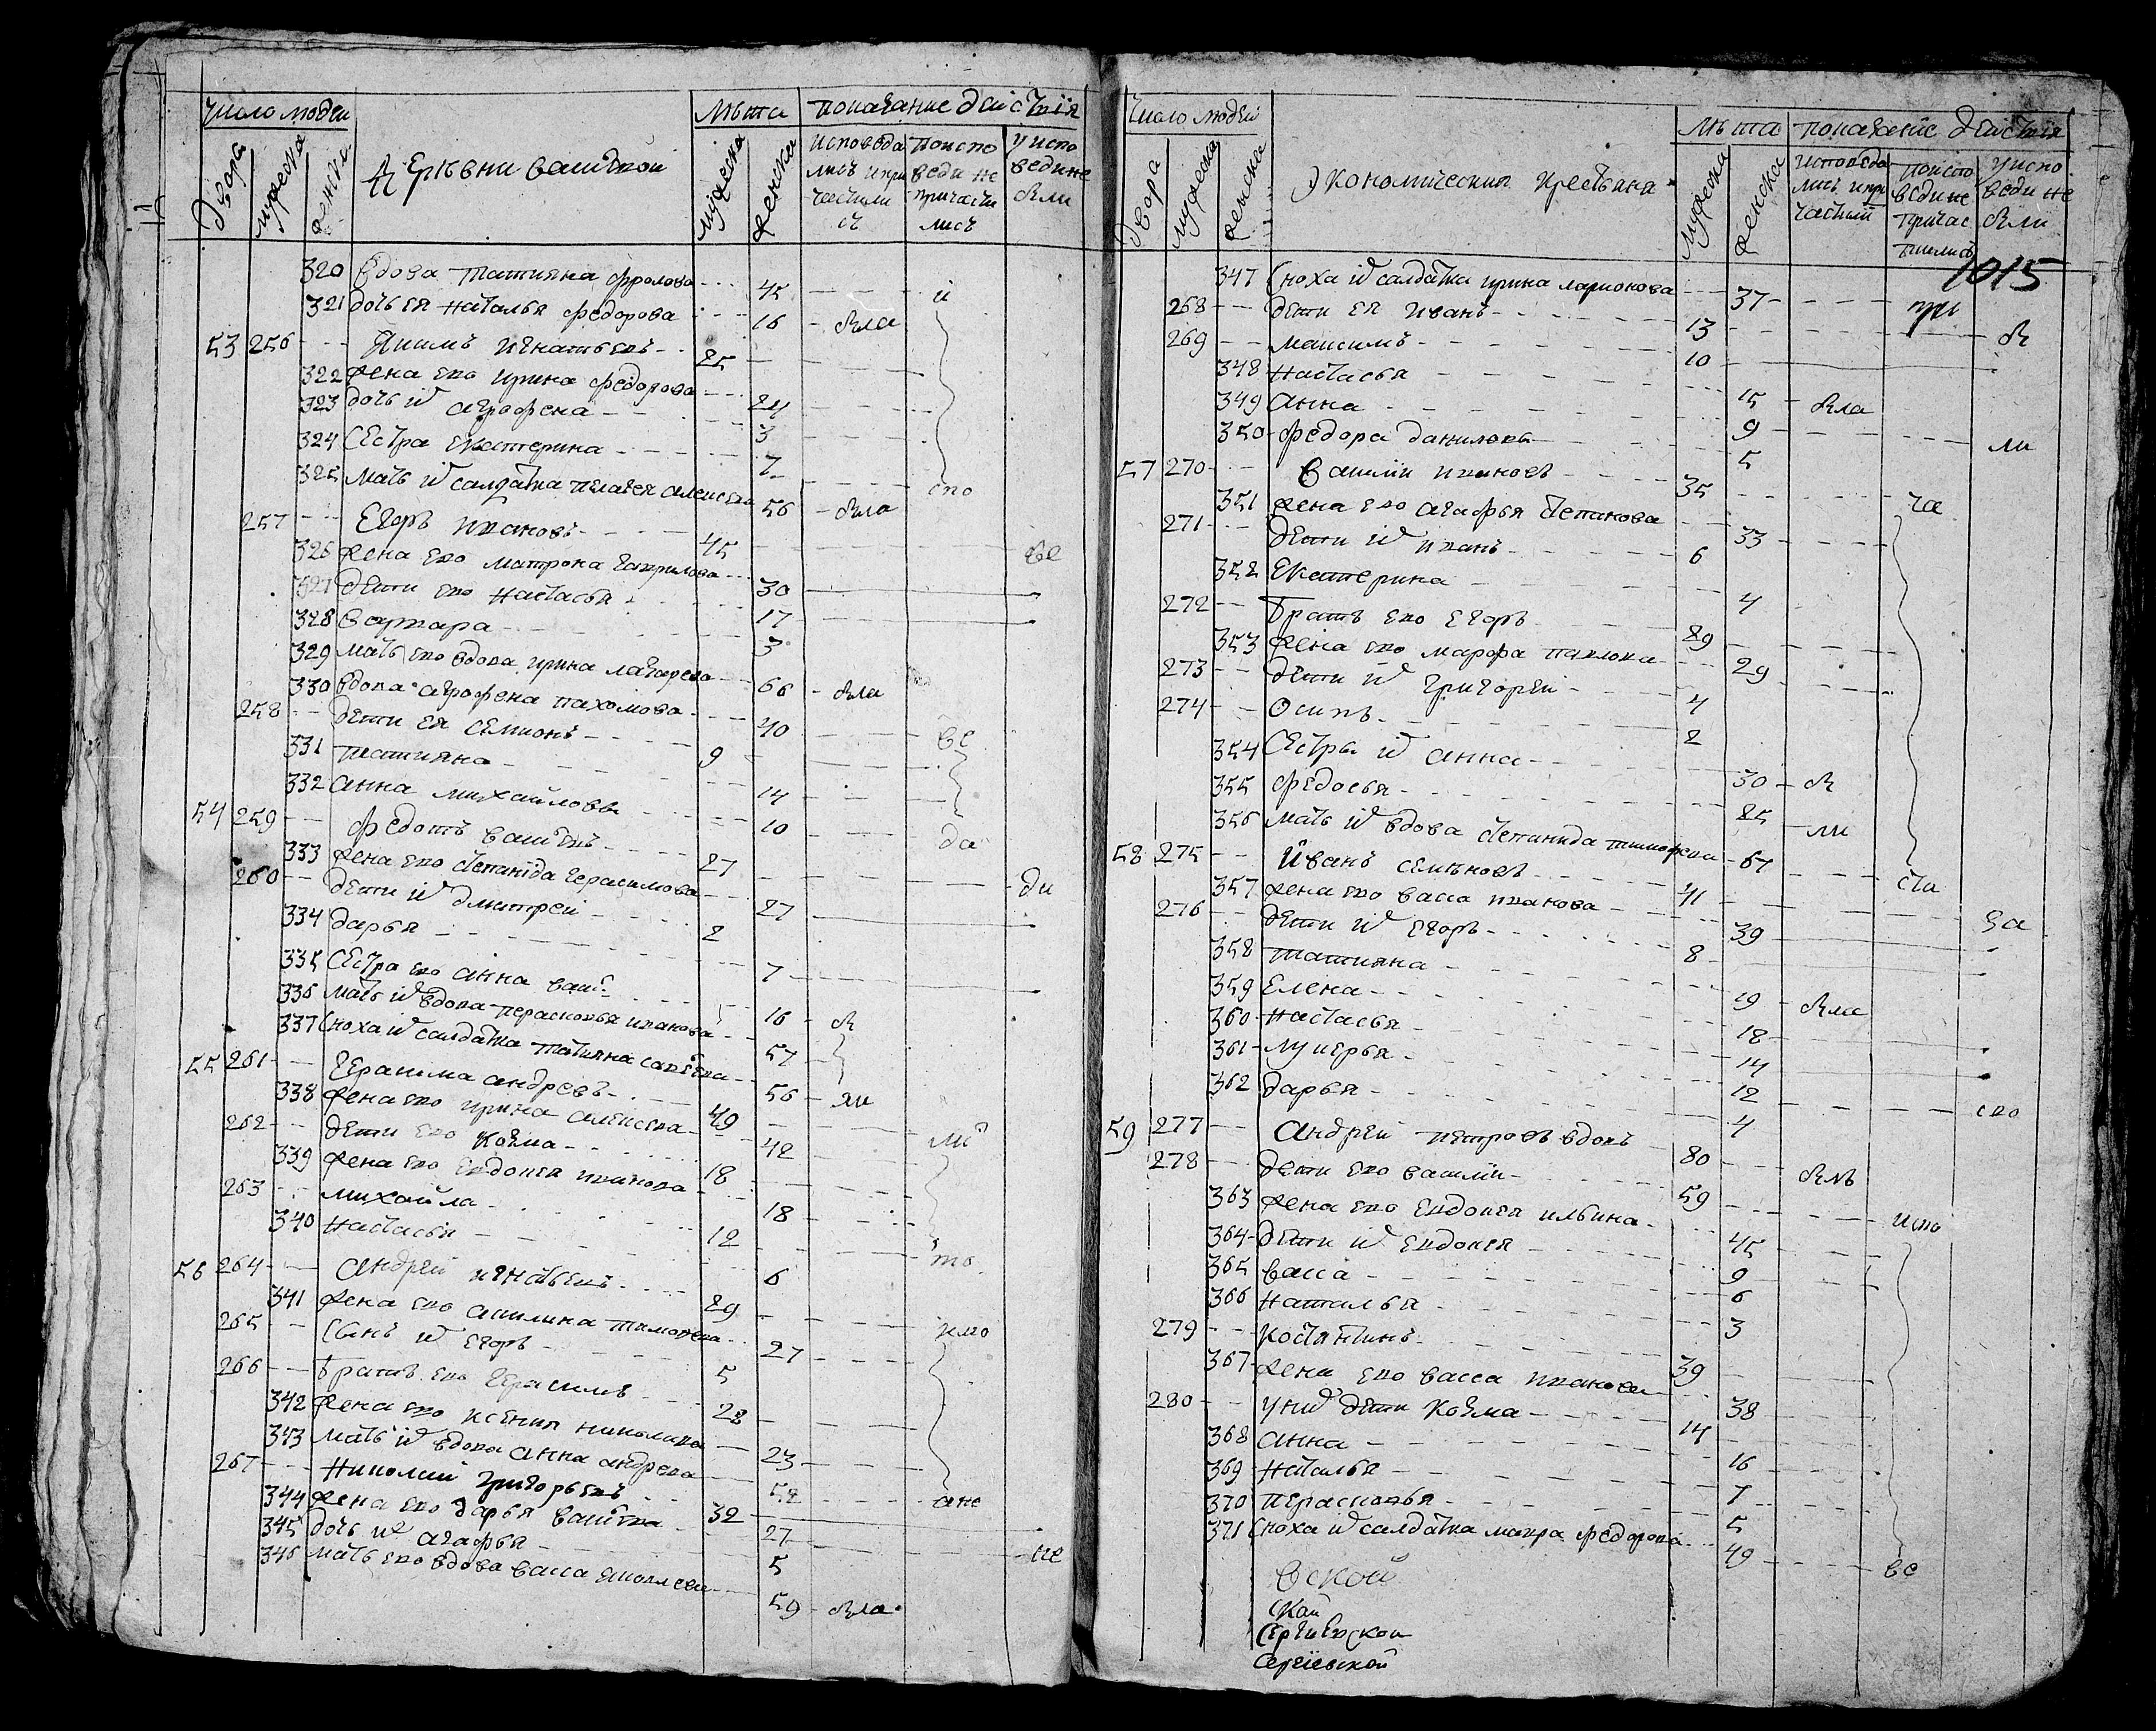 Число людеи
Двора
мужеска
женска
Дервни васил кои
Лѣта
мужеска
женска
показание действия
исповеда лись и при частили съ
по испо веди не причасти лись
у испо веди не были
320 вдова татияна фролова 45 и
321 дочь ея наталья федорова 16 была
53 256 Яким игнатьевъ 25
322 жена ево ирина федорова 24
323 дочь их аграфена 3
324 сестра екатерина 7
325 мать их салдатка пелагея алексева 56 спо была
257 Егоръ ивановъ 45
326 жена ево матрона гаврилова 30 ве
327 дети ево настасья 17
328 варвара 3
329 мать ево вдова ирина лазарева 66 была
330 вдова аграфена пахомова 40
258 дети ея семионъ 9 ве
331 татияна 14
332 анна михайловы 10
54 259 федотъ васильевъ 27 да
333 жена ево степанида герасимова 27 ди
260 дети их дмитреи 2
334 дарья 7
335 сестра ево анна васил 16 бы
336 мать их вдова перасковья иванова 57
337 сноха их салдатка татияна савельева 56 ли
55 261 герасима андревъ 49
338 жена ево ирина алексева 42 ли
262 дети ево козма 18
339 жена ево евдокея иванова 18
263 михайла 12
340 настасья 6 то
56 264 андреи игнатьевъ 29
341 жена ево акилина тимофеева 27 кмо
265 сынъ их егоръ 5
266 братъ ево герасимъ 28
342 жена ево ксения николаева 23
343 мать их вдова анна андрева 52
267 николаи григорьевъ 32 ане
344 жена ево дарья васильева 27
345 дочь их агафья 5 не
346 мать ево вдова васса яковлева 59 была
Число людеи
Двора
мужеска
женска
Экономическия крестьяна
Лѣта
мужеска
женска
показание действия
исповеда лись и при частили
по испо веди не причас тились
у испо веди не были
1015
347 сноха их салдатка ирина ларионова 37 при
268 дети ея иванъ 13 бы
269 максимъ 10
348 настасья 15 была
349 анна 9
350 федора даниловы 5 ли
57 270 Василии ивановъ 35
351 жена ево агафья степанова 33 ча
271 дети их иванъ 6
352 Екатерина 4
272 братъ ево егоръ 29
353 жена ево марфа павлова 29
273 дети их григореи 4
274 осипъ 2
354 сестры их анна 30 бы
355 федосья 25
356 мать их вдова степанида тимофева 67 ли
58 275 иванъ семеновъ 41 сти
357 жена ево васса иванова 39 за
276 дети их егоръ 8
358 татияна 19 была
359 елена 18
360 настасья 14
361 лукерья 12
362 дарья 4 спо
59 277 андреи петровъ вдовъ 80
278 дети ево василии 59 былъ
363 жена ево евдокея ильина 45 испо
364 дети их евдокея 9
365 васса 6
366 наталья 3
279 костянтинъ 39
367 жена ево васса иванова 38
280 у них дети козма 14
368 анна 16
369 наталья 7
370 перасковья 5
371 сноха их салдатка мавра федорова 49 ве
вской
скаи
сергиевскои
сергiевской